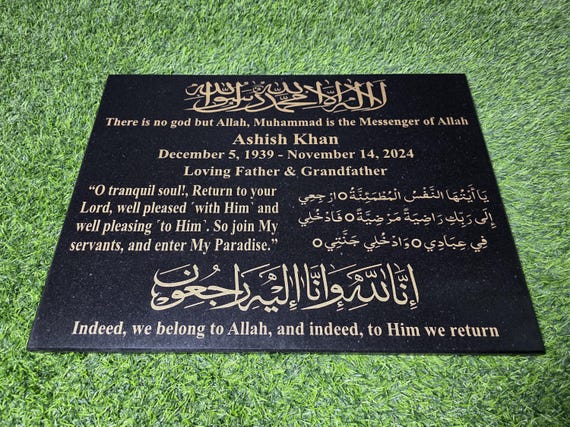 لا اله الا الله محمد رسول الله
There is no god but Allah, Muhammad is the Messenger of Allah
Ashish Khan
December 5, 1939 - November 14, 2024
Loving Father & Grandfather
“O tranquil soul!, Return to your
Lord, well pleased ´with Him` and
well pleasing ´to Him`. So join My
servants, and enter My Paradise.”
يَا أَيَّتُهَا النَّفْسُ الْمُطْمَئِنَّةُ ۝ ارْجِعِي
إِلَى رَبِّكِ رَاضِيَةً مَرْضِيَّةً ۝ فَادْخُلِي
فِي عِبَادِي ۝ وَادْخُلِي جَنَّتِي ۝
إنا لله وإنا إليه راجعون
Indeed, we belong to Allah, and indeed, to Him we return